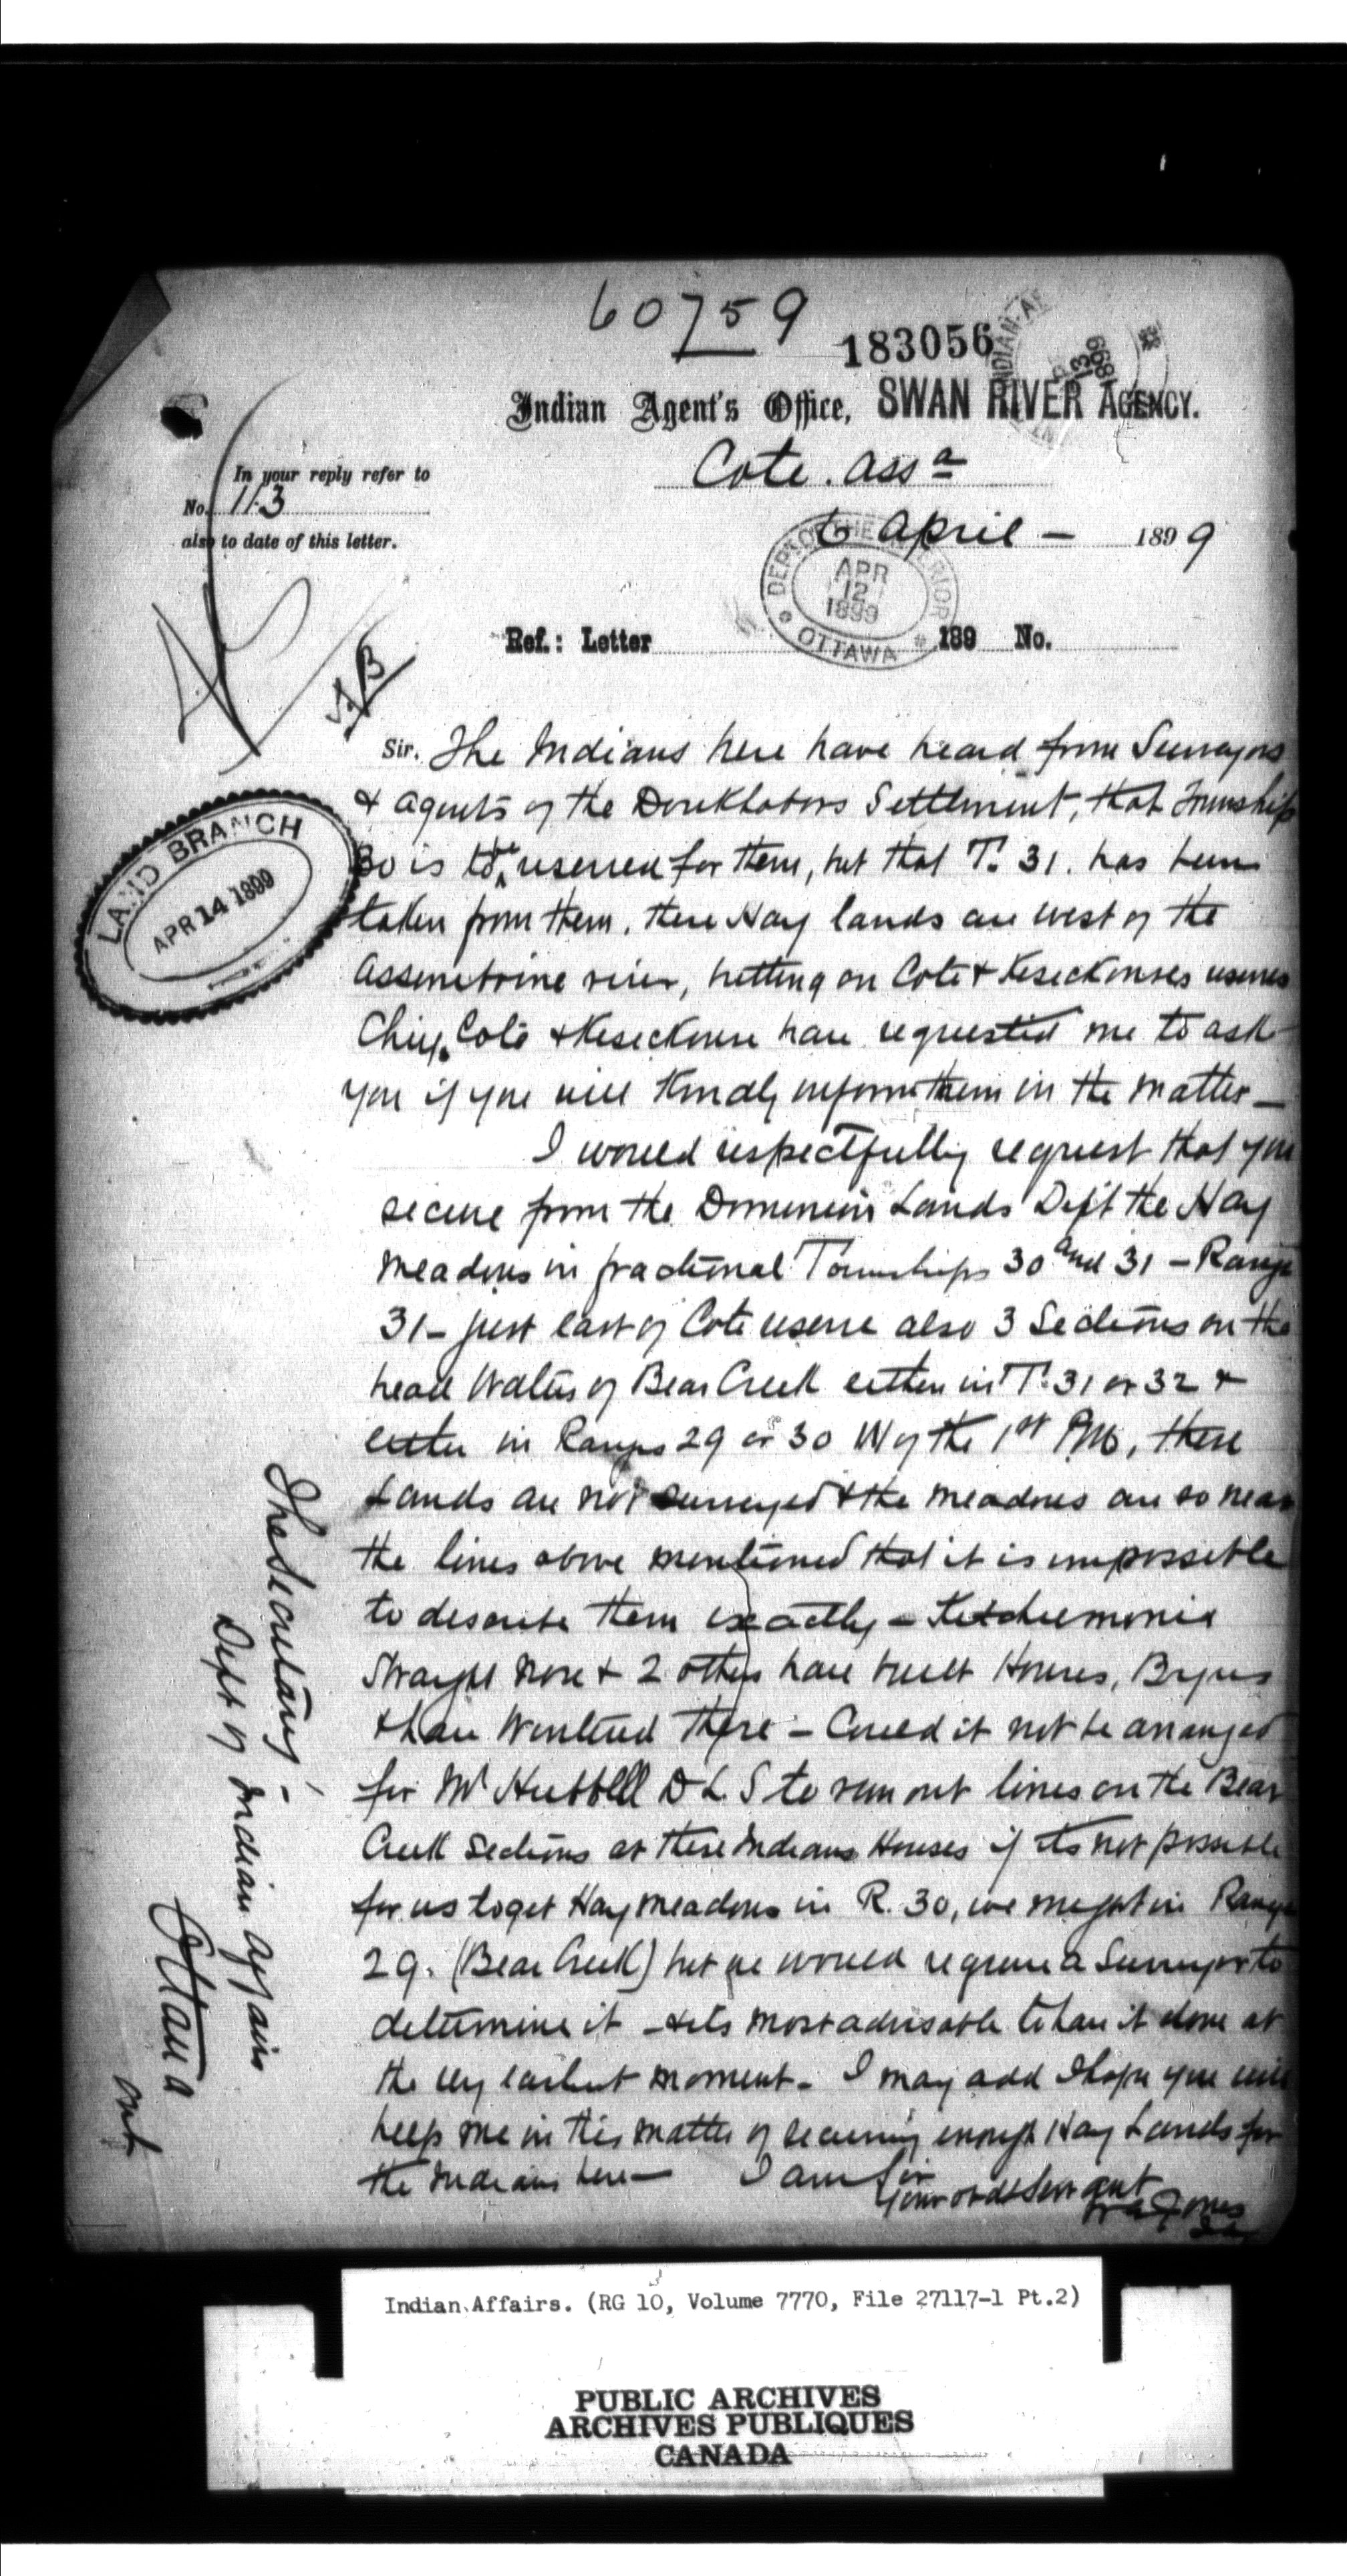 60759
183056
Indian Agent's Office, SWAN RIVER AGENCY.
Cote. Assa
In your reply refer to
No. 113
also to date of this letter.
6 April - 1899
DEPT OF THE INTERIOR
APR
12
1899
OTTAWA
Ref.: Letter 189 No.
Sir. The Indians here have heard from Surveyors
& agents of the Doukhobors Settlement, that Township
30 is to be reserved for them, but that T. 31. has been
taken from them. these Hay lands are west of the
Assineboine river, butting on Cote & Kesickouses reserves
Chiefs Cote & Kesickouse have requested me to ask
you if you will kindly inform them in the matter —
LAND BRANCH
APR 14 1899
I would respectfully request that you
secure from the Dominion Lands Dept the Hay
meadows in fractional Townships 30 and 31 - Range
31 - just east of Cote reserve also 3 Sections on the
head Waters of Bear Creek either in T. 31 or 32 &
either in Ranges 29 or 30 W of the 1st PM, these
Lands are not surveyed & the meadows are so near
the lines above mentioned that it is impossible
to describe them exactly -
Straight Nose & 2 others have built Houses, Byres
& have Wintered there - Could it not be arranged
for Mr Hubbell D L S to run out lines on the Bear
Creek Sections at these Indians Houses if its not possible
for us to get Hay meadows in R. 30, we might in Range
29. (Bear Creek) but we would require a Surveyor to
determine it - & its most advisable to have it done at
the very earliest moment - I may add I hope you will
help me in this matter of securing enough Hay Lands for
the Indians here — I am Sir
Your obdt Servant
W E Jones
The Secretary -
Dept of Indian Affairs
Ottawa
Ont
Indian Affairs. (RG 10, Volume 7770, File 27117-1 Pt.2)
PUBLIC ARCHIVES
ARCHIVES PUBLIQUES
CANADA